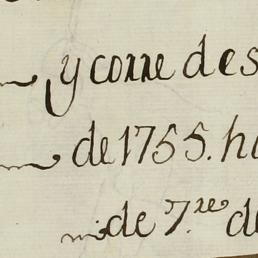 y corre des
de 1755. ha
de 7.re de